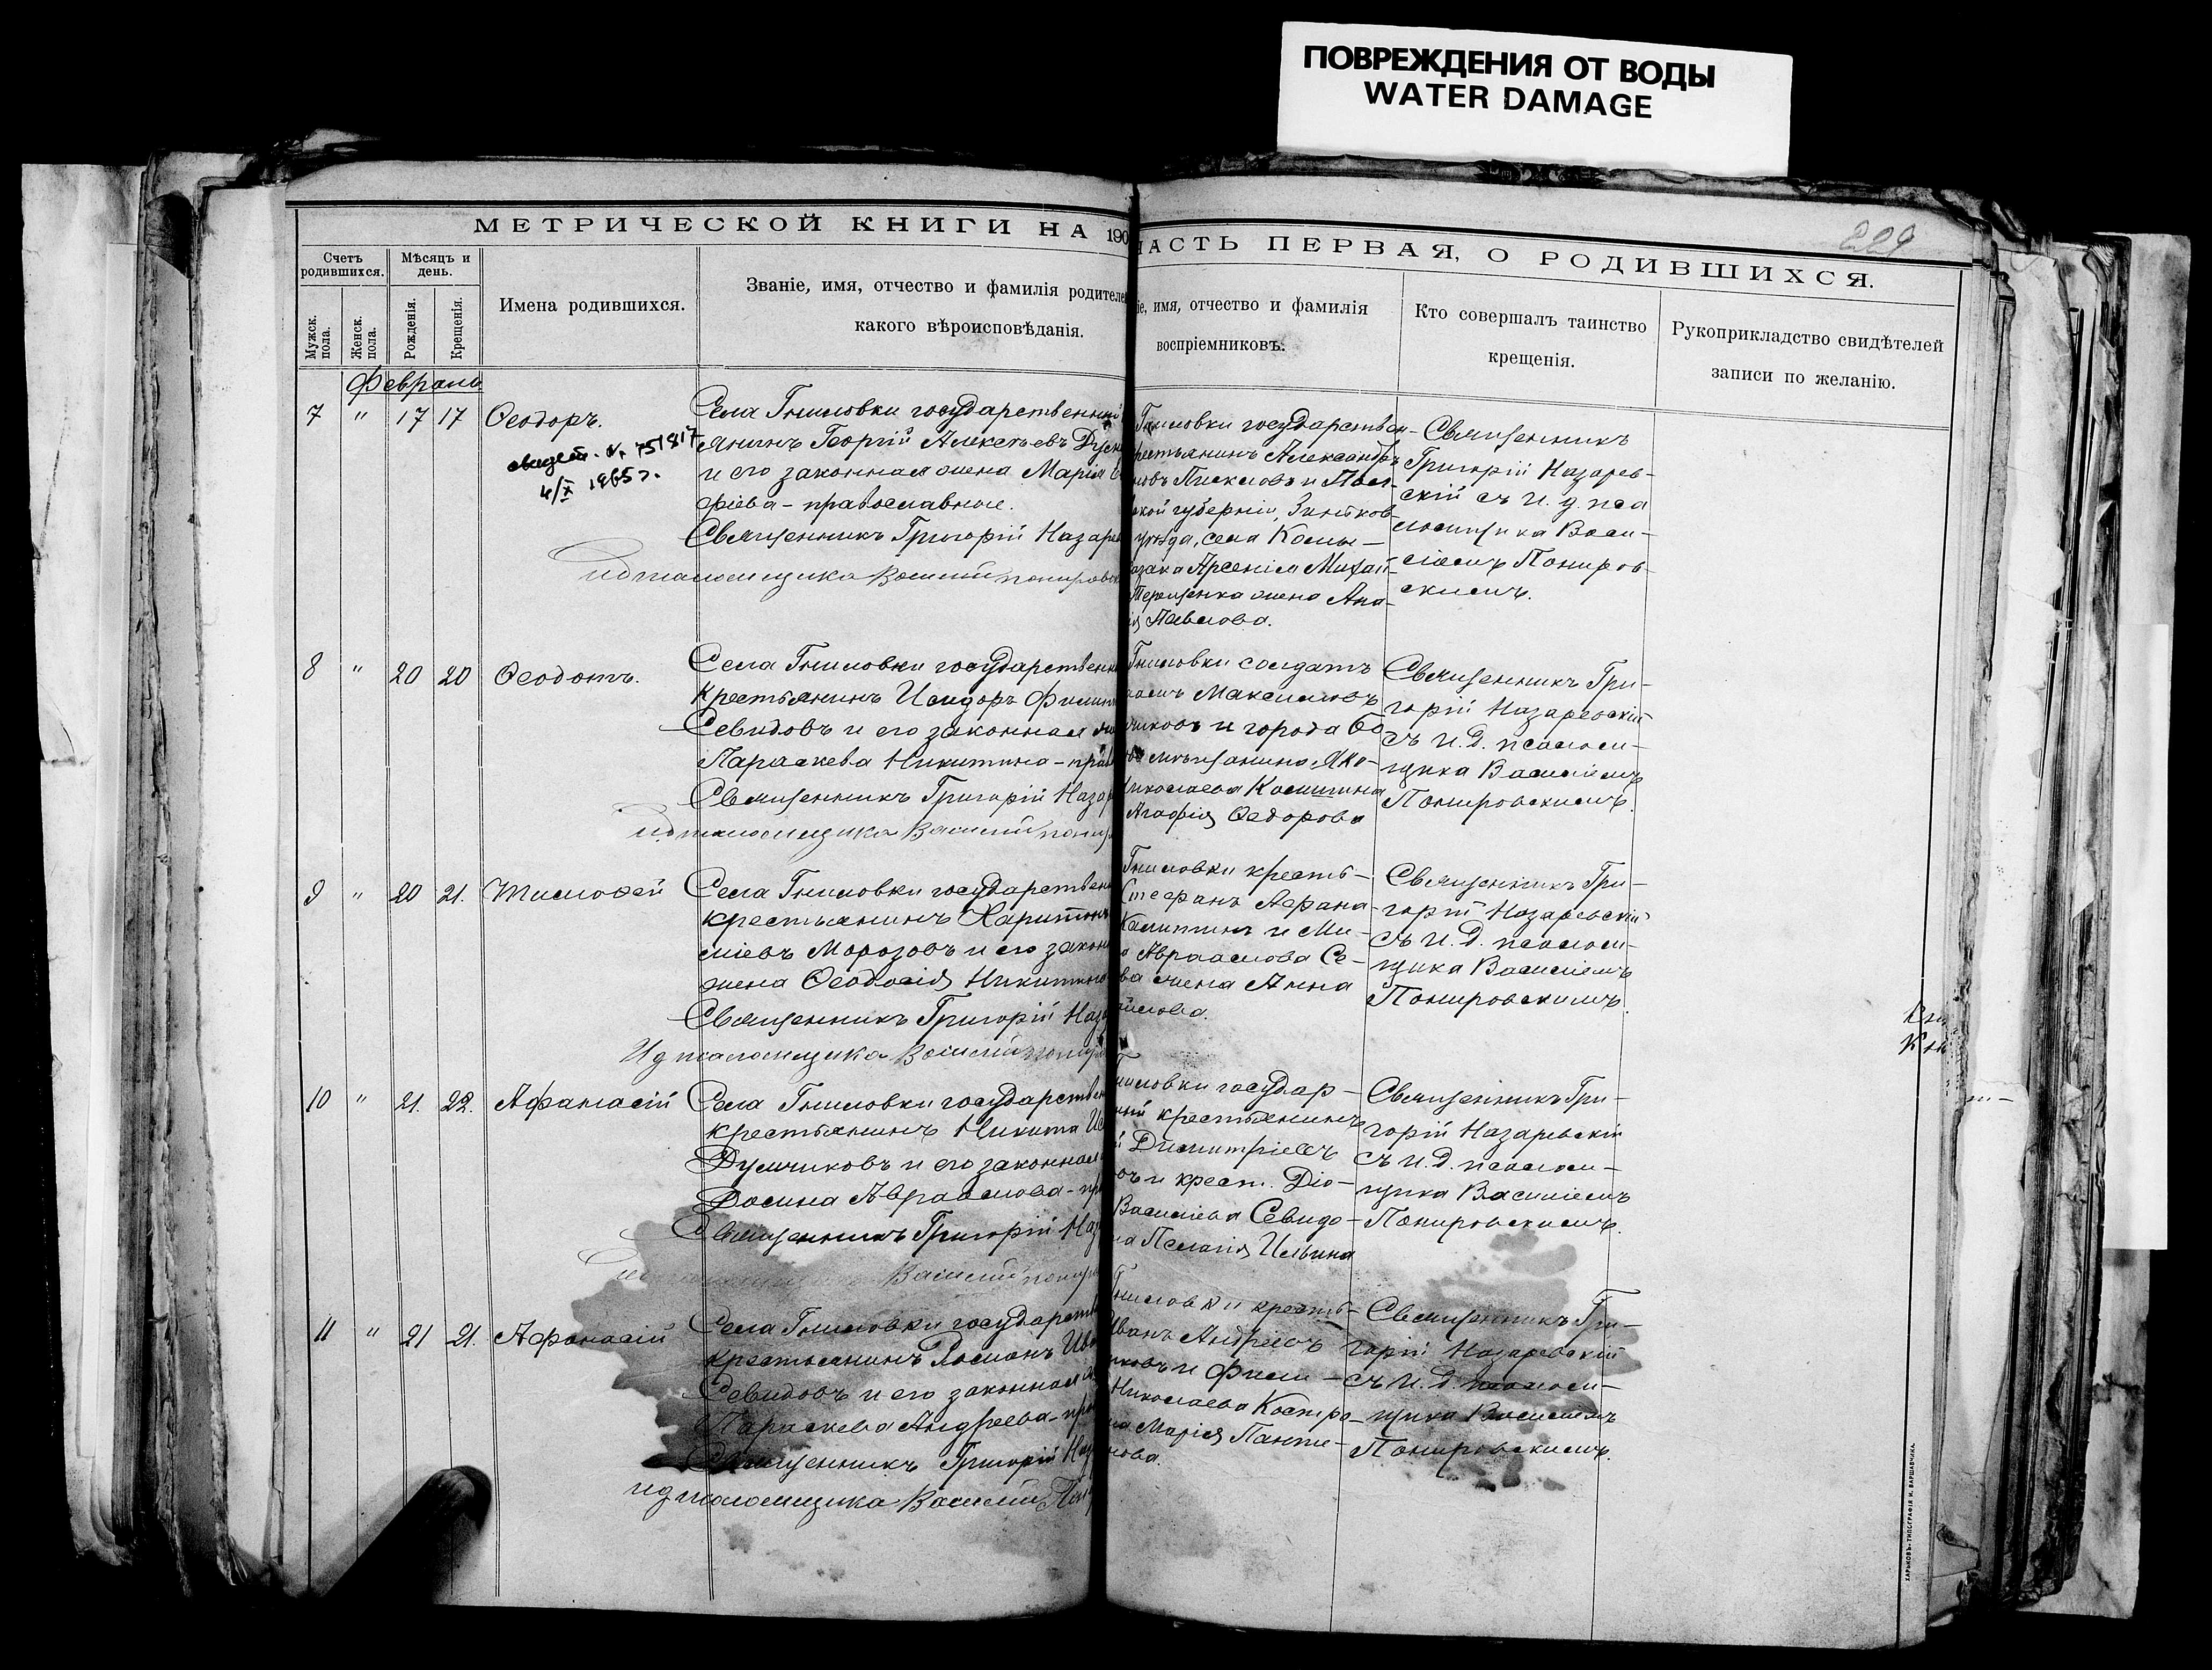 ПОВРЕЖДЕНИЯ ОТ ВОДЫ
WATER DAMAGE
229
МЕТРИЧЕСКОЙ КНИГИ НА 190
ЧАСТЬ ПЕРВАЯ, О РОДИВШИХСЯ.
Счетъ родившихся.
Мѣсяцъ и день.
Мужск. пола.
Женск. пола.
Рожденія.
Крещенія.
Имена родившихся.
Званіе, имя, отчество и фамилія родителе
какого вѣроисповѣданія.
іе, имя, отчество и фамилія
воспріемниковъ.
Кто совершалъ таинство
крещенія.
Рукоприкладство свидѣтелей
записи по желанію.
Февраль
7 " 17 17 Ѳеодоръ.
4/X 1965 г.
Села Гниловки государственный
янинъ Георгій Алексѣевъ
и его законная жена Марія
фіева - православные.
Священникъ Григорій Назарев
Гниловки государствен-
рестьянинъ Александръ
ской губерніи, Зиньков-
уѣзда, села
зака Арсенія Михай-
жена Ана-
Павлова.
Священникъ
Григорій Назарев-
скій съ и. д. пса
ломщика Васи-
ліемъ Понировскимъ.
8 " 20 20 Ѳеодотъ.
Села Гниловки государственн
крестьянинъ Исидоръ Филип
Севидовъ и его законная же
Параскева Никитина - прав
Священникъ Григорій Назар
ид псаломщика Василій Понир
Гниловки солдатъ
Максимовъ
чиковъ и города Бо
мѣщанина, Яко-
Николаева Калинина
Агафія Ѳедорова
Священникъ Гри-
горій Назаревскій
съ и. д. псалом-
щика Василіемъ
Понировскимъ.
9 " 20 21. Тимоѳей
Села Гниловки государствен
крестьянинъ Харитонъ
сіевъ Морозовъ и его закон
жена Ѳеодосія Никитина
Священникъ Григорій Наза
ид псаломщика Василій Понир
Гниловки кресть-
Стефанъ Афана-
Калитинъ и Ми-
Авраамова Се-
ва жена Анна
Священникъ Гри-
горій Назаревскій
съ и. д. псалом-
щика Василіемъ
Понировскимъ.
10 " 21. 22. Афанасій
Села Гниловки государствен
крестьянинъ Никита
Думчиковъ и его законная
Домна Авраамова - пр
Священникъ Григорій Наз
Василій Понир
ниловки государ-
ный крестьянинъ
й Димитріевъ
въ и крест. Діо-
Василіева Севидо-
на Пелагія Ильина
Священникъ Гри-
горій Назаревскій
съ и. д. псалом-
щика Василіемъ
Понировскимъ.
11 " 21 21. Афанасій
Села Гниловки государств
крестьянинъ Ива
Севидовъ и его законная
Параскева Андреева - пра
Священникъ Григорій Наз
ид псаломщика Василій Пон
Гниловки кресть-
Иванъ Андреевъ
ковъ и Фили-
Николаева Костро-
на Марія Панте-
нова.
Священникъ Гри-
горій Назаревскій
съ и. д. псалом-
щика Василіемъ
Понировскимъ.
ХАРЬКОВЪ. ТИПОГРАФІЯ И. ВАРШАВЧИКА.